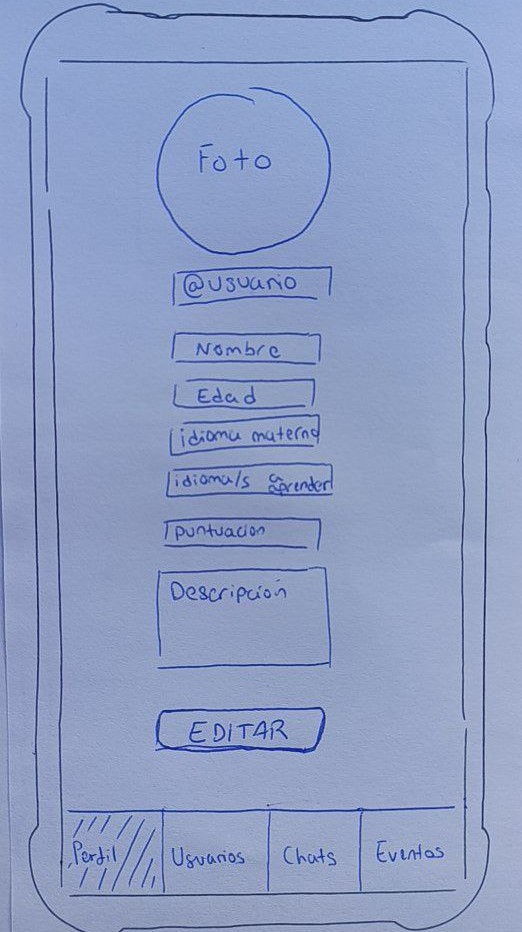 Foto
@usuario
Nombre
Edad
idioma materno
idioma/s a aprender
puntuacion
Descripción
EDITAR
Perfil Usuarios Chats Eventos